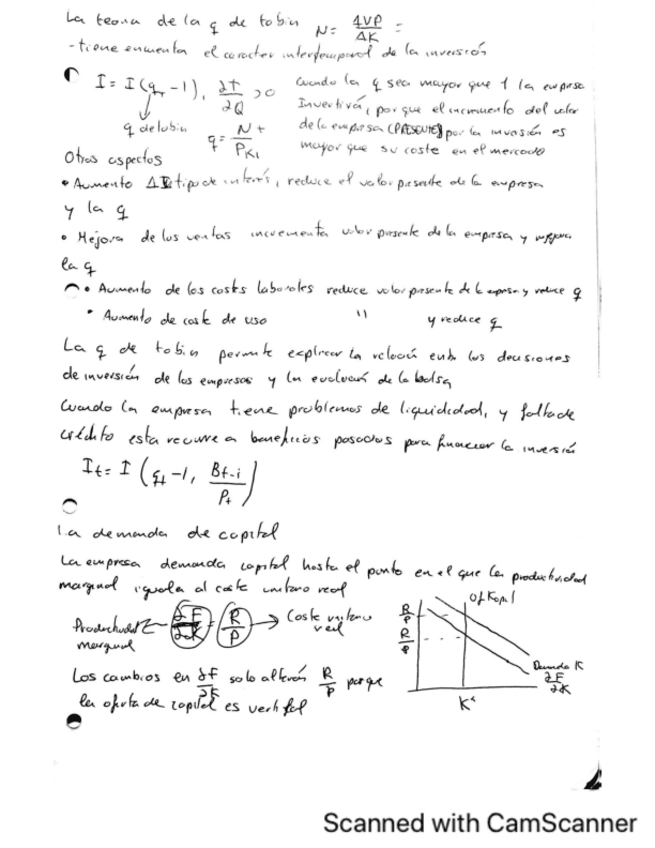 La teoria de la q de tobin N = ΔVP/ΔK =
- tiene encuenta el caracter intertemporal de la inversión
I = I(qt - 1), ∂I/∂Q >0 Cuando la q sea mayor que 1 la empresa
Invertirá, porque el incremento del valor
q de tobin q = Nt/PKt de la empresa (PRESENTE) por la inversión es
mayor que su coste en el mercado
Otros aspectos
• Aumento Δ tipo de interés, reduce el valor presente de la empresa
y la q
• Mejora de las ventas incrementa valor presente de la empresa y mejora
la q
• Aumento de los costes laborales reduce valor presente de la empresa y reduce q
• Aumento de coste de uso " y reduce q
La q de tobin permite explicar la relación entre las decisiones
de inversión de las empresas y la evolución de la bolsa
Cuando la empresa tiene problemas de liquididad, y falta de
crédito esta recurre a beneficios pasados para financiar la inversión
It = I (qt - 1, Bt-i/Pt)
La demanda de capital
La empresa demanda capital hasta el punto en el que la productividad
marginal iguala al coste unitario real
Productividad marginal ∂F/∂K = R/P → Coste unitario real
Los cambios en ∂F/∂K solo alteran R/P porque
la oferta de capital es vertical
R/P
R/P
Of Kapi
Demanda K
∂F/∂K
K*
Scanned with CamScanner